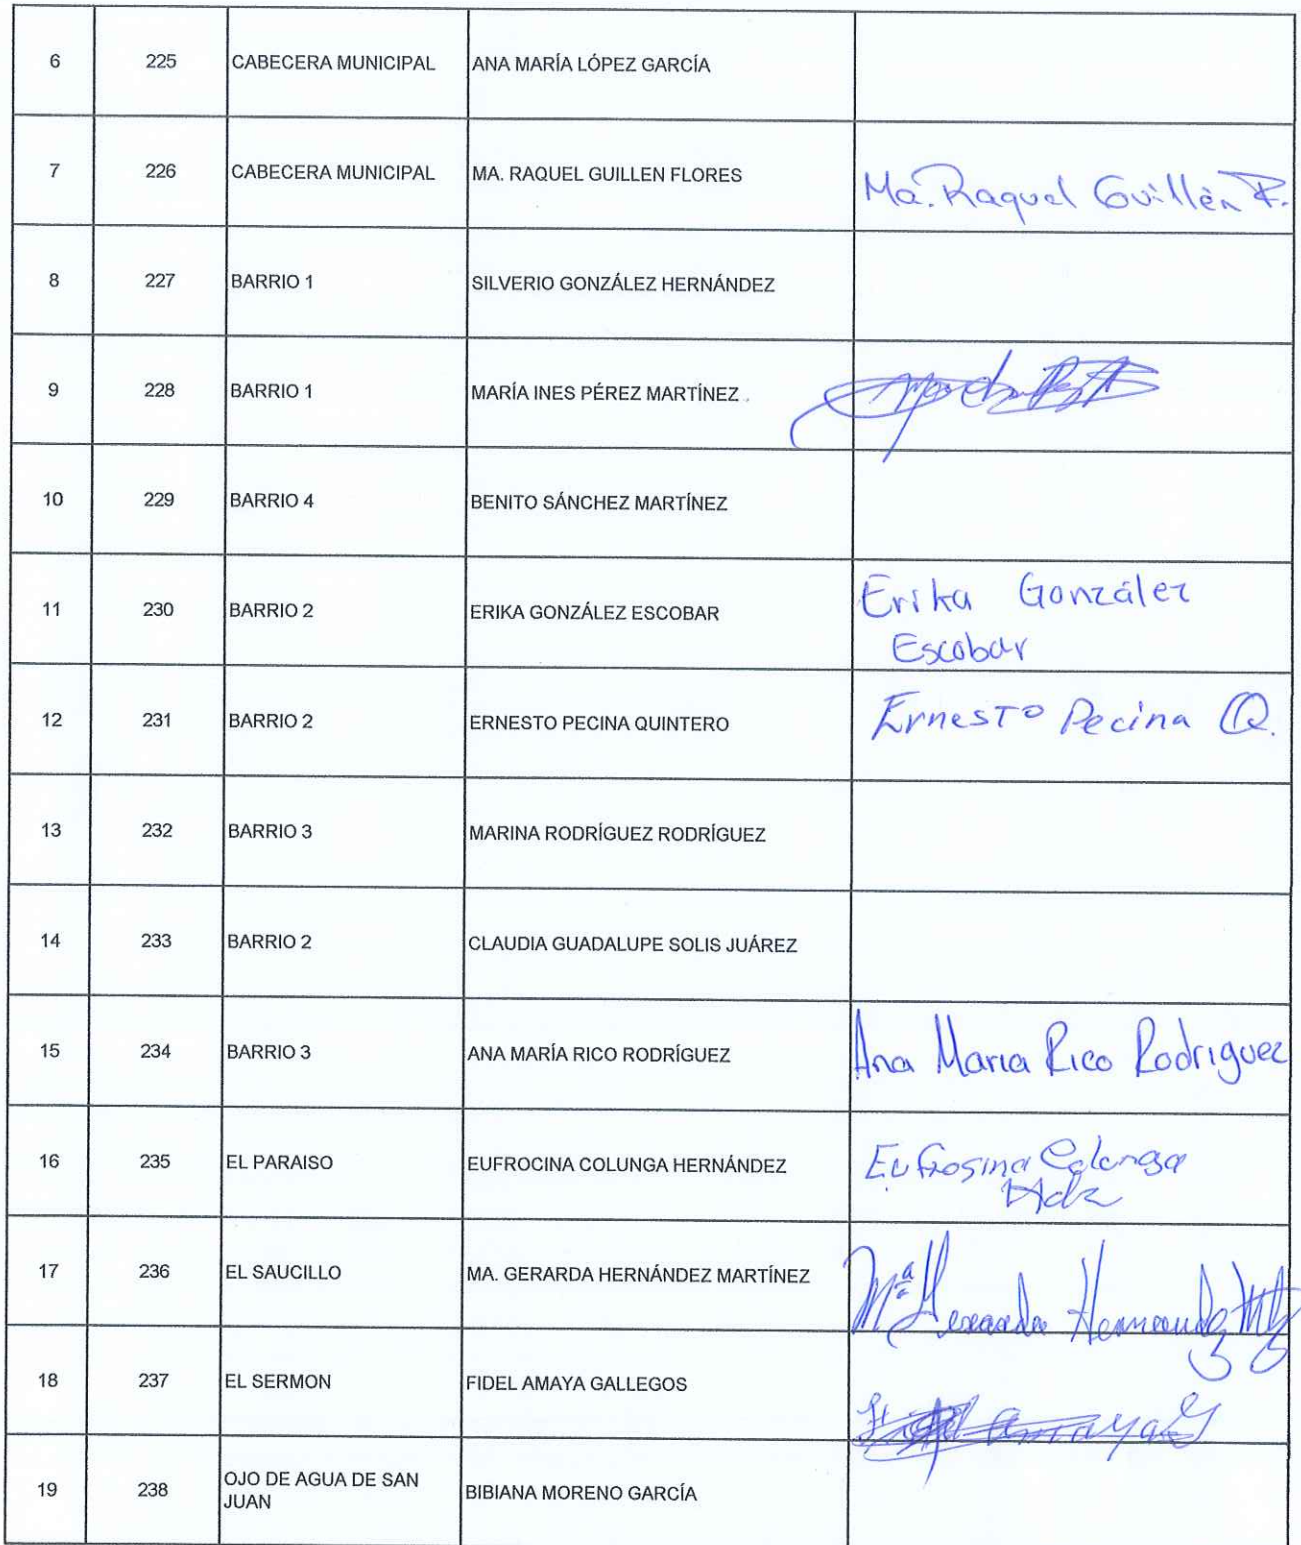 6 225 CABECERA MUNICIPAL ANA MARÍA LÓPEZ GARCÍA
7 226 CABECERA MUNICIPAL MA. RAQUEL GUILLEN FLORES Ma. Raquel Guillén F.
8 227 BARRIO 1 SILVERIO GONZÁLEZ HERNÁNDEZ
9 228 BARRIO 1 MARÍA INES PÉREZ MARTÍNEZ
10 229 BARRIO 4 BENITO SÁNCHEZ MARTÍNEZ
11 230 BARRIO 2 ERIKA GONZÁLEZ ESCOBAR Erika González
Escobar
12 231 BARRIO 2 ERNESTO PECINA QUINTERO Ernesto Pecina Q.
13 232 BARRIO 3 MARINA RODRÍGUEZ RODRÍGUEZ
14 233 BARRIO 2 CLAUDIA GUADALUPE SOLIS JUÁREZ
15 234 BARRIO 3 ANA MARÍA RICO RODRÍGUEZ Ana Maria Rico Rodriguez
16 235 EL PARAISO EUFROCINA COLUNGA HERNÁNDEZ Eufrosina Colunga
Hdz
17 236 EL SAUCILLO MA. GERARDA HERNÁNDEZ MARTÍNEZ Mª Gerarda Hernandez Mtz
18 237 EL SERMON FIDEL AMAYA GALLEGOS Fidel Amaya G
19 238 OJO DE AGUA DE SAN
JUAN BIBIANA MORENO GARCÍA